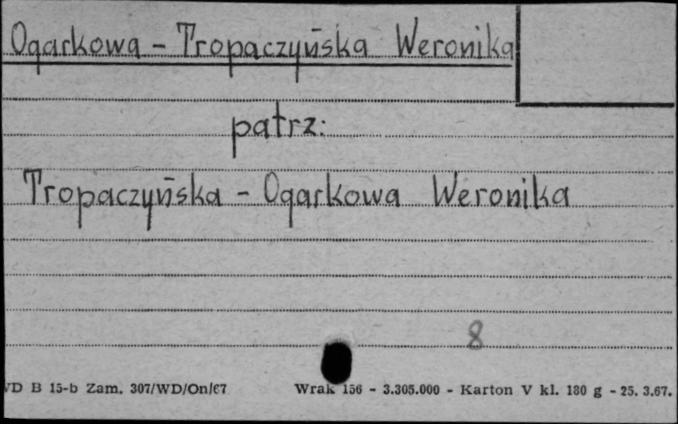 Ogarkowa - Tropaczyńska Weronika
patrz:
Tropaczyńska - Ogarkowa Weronika
8
WD B 15-b Zam. 307/WD/On/67 Wrak 156 - 3.305.000 - Karton V kl. 180 g - 25. 3.67.